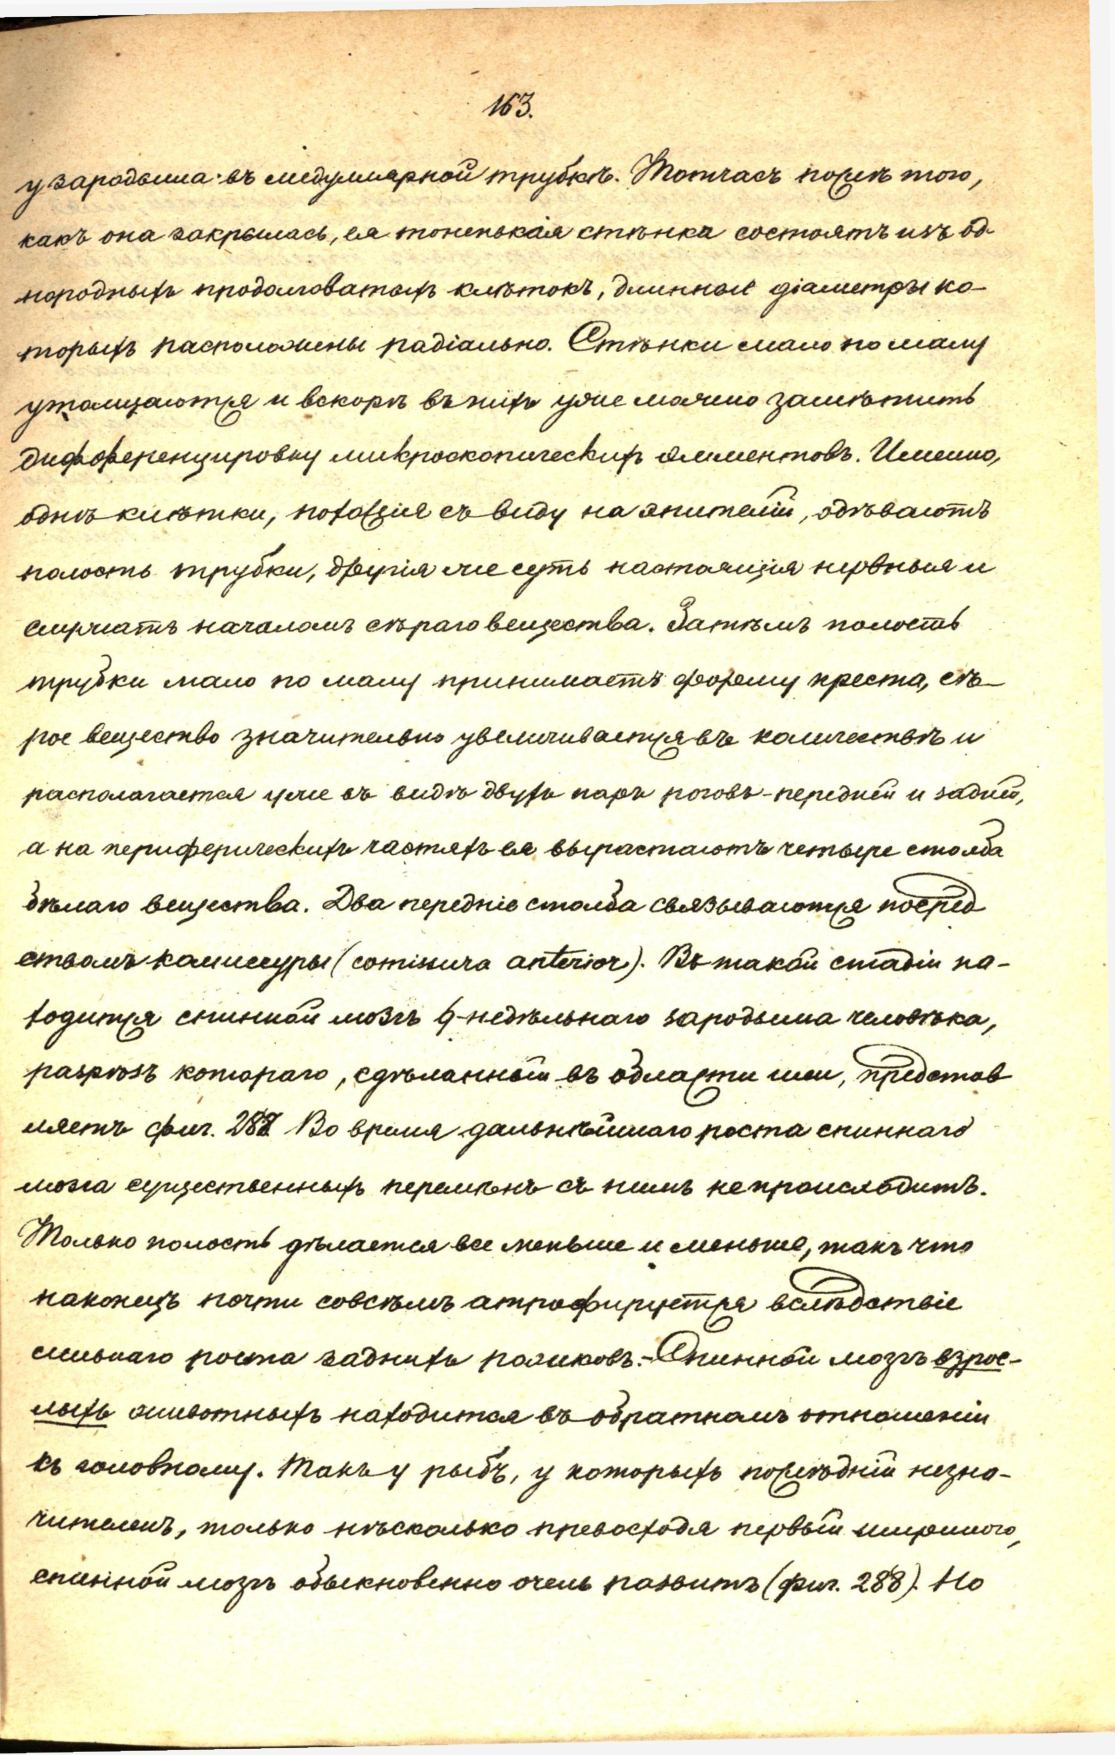 163.
у зародыша въ медуллярной трубкѣ. Тотчасъ послѣ того,
какъ она закрылась, ея тоненькая стѣнка состоятъ изъ од-
нородныхъ продолговатыхъ клѣтокъ, длинные діаметры ко-
торыхъ расположены радіально. Стѣнки мало по малу
утолщаются и вскорѣ въ нихъ уже можно замѣтить
дифференцировку микроскопическихъ элементовъ. Именно,
однѣ клѣтки, похожія съ виду на эпителій, одѣваютъ
полость трубки, другія же суть настоящія нервныя и
служатъ началомъ сѣраго вещества. Затѣмъ полость
трубки мало по малу принимаетъ форму креста, сѣ-
рое вещество значительно увеличивается въ количествѣ и
располагается уже въ видѣ двухъ паръ роговъ - передней и задней,
а на периферическихъ частяхъ ея вырастаютъ четыре столба
бѣлаго вещества. Два передніе столба связываются посред
ствомъ камиссуры (comissura anterior). Въ такой стадіи на-
ходится спинной мозгъ 6-недѣльнаго зародыша человѣка,
разрѣзъ котораго, сдѣланный въ области шеи, представ
ляетъ фиг. 288 Во время дальнѣйшаго роста спиннаго
мозга существенныхъ перемѣнъ съ нимъ не происходитъ.
Только полость дѣлается все меньше и меньше, такъ что
наконецъ почти совсѣмъ атрофируется вслѣдствіе
сильнаго роста заднихъ роживовъ. - Спинной мозгъ взрос-
лыхъ животныхъ находится въ обратномъ отношеніи
къ головному. Такъ у рыбъ, у которыхъ послѣдній незна-
чителенъ, только нѣсколько превосходя первый шириною,
спинной мозгъ обыкновенно очень развитъ (фиг. 288). Но